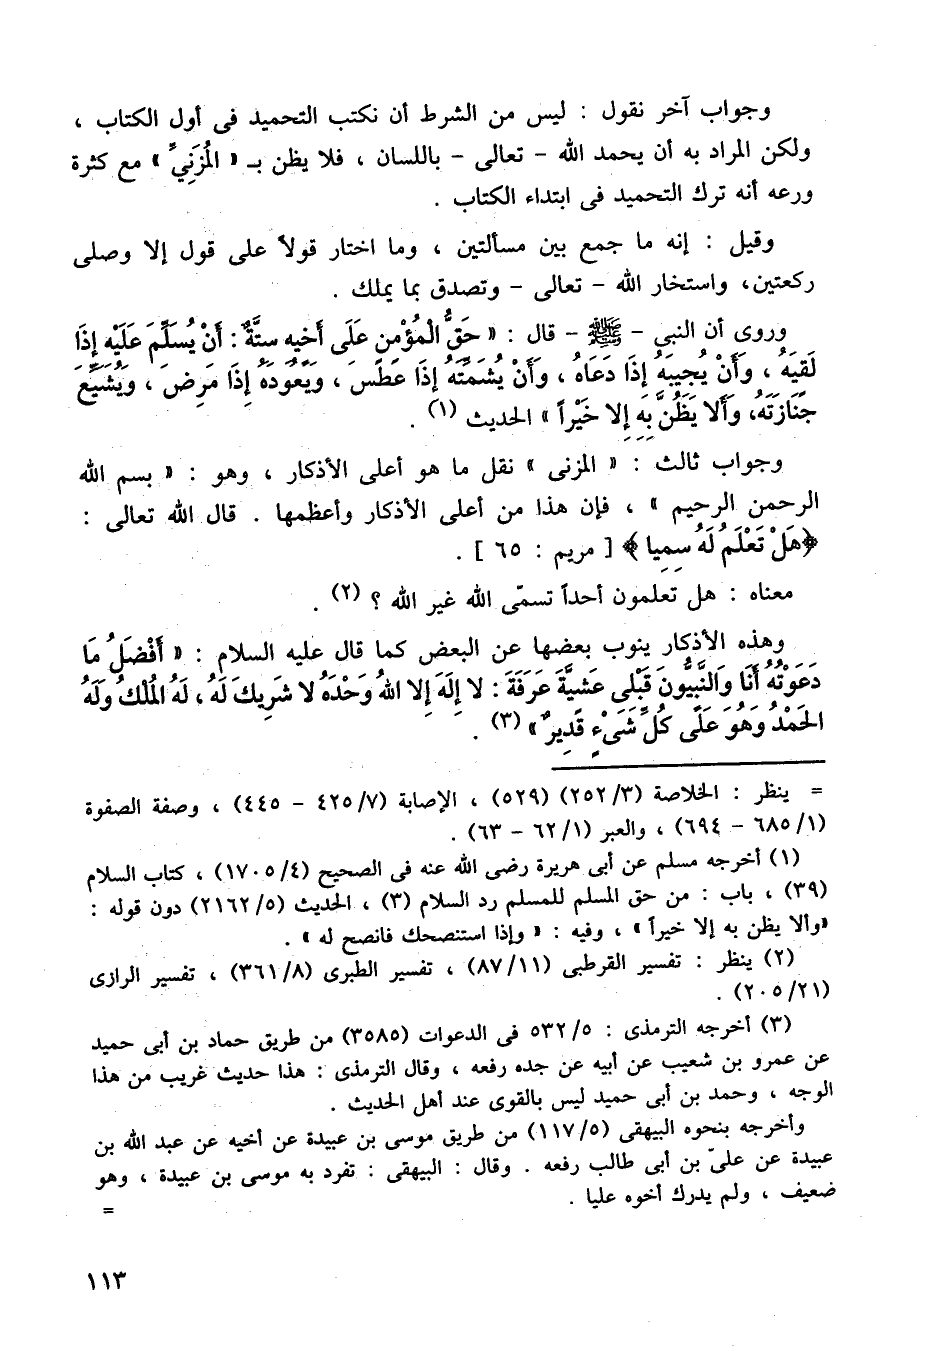 وجواب آخر نقول : ليس من الشرط أن نكتب التحميد فى أول الكتاب ،
ولكن المراد به أن يحمد الله – تعالى – باللسان ، فلا يظن بـ « الْمُزَنِيِّ » مع كثرة
ورعه أنه ترك التحميد فى ابتداء الكتاب .
وقيل : إنه ما جمع بين مسألتين ، وما اختار قولاً على قول إلا وصلى
ركعتين، واستخار الله – تعالى – وتصدق بما يملك .
وروى أن النبى – ﷺ – قال : « حَقُّ الْمُؤْمِنِ عَلَى أَخِيهِ سِتَّةٌ : أَنْ يُسَلِّمَ عَلَيْهِ إِذَا
لَقِيَهُ ، وَأَنْ يُجِيبَهُ إِذَا دَعَاهُ ، وَأَنْ يُشَمِّتَهُ إِذَا عَطَسَ ، وَيَعُودَهُ إِذَا مَرِضَ ، وَيُشَيِّعَ
جَنَازَتَهُ، وَأَلا يَظُنَّ بِهِ إِلا خَيْراً » الحديث (١) .
وجواب ثالث : « المزنى » نقل ما هو أعلى الأذكار ، وهو : « بسم الله
الرحمن الرحيم » ، فإن هذا من أعلى الأذكار وأعظمها . قال الله تعالى :
﴿هَلْ تَعْلَمُ لَهُ سِمِيا ﴾ [ مريم : ٦٥ ] .
معناه : هل تعلمون أحداً تسمّى الله غير الله ؟ (٢) .
وهذه الأذكار ينوب بعضها عن البعض كما قال عليه السلام : « أَفْضَلُ مَا
دَعَوْتُهُ أَنَا وَالنَّبِيُّونَ قَبْلِى عَشِيَّةَ عَرَفَةَ : لا إِلَهَ إِلا اللهُ وَحْدَهُ لا شَرِيكَ لَهُ ، لَهُ الْمُلْكُ وَلَهُ
الحَمْدُ وَهُوَ عَلَى كُلِّ شَىْءٍ قَدِيرٌ » (٣) .
= ينظر : الخلاصة (٢٥٢/٣) (٥٢٩) ، الإصابة (٤٢٥/٧ – ٤٤٥) ، وصفة الصفوة
(٦٨٥/١ – ٦٩٤) ، والعبر (٦٢/١ – ٦٣) .
(١) أخرجه مسلم عن أبى هريرة رضى الله عنه فى الصحيح (١٧٠٥/٤) ، كتاب السلام
(٣٩) ، باب : من حق المسلم للمسلم رد السلام (٣) ، الحديث (٢١٦٢/٥) دون قوله :
«وألا يظن به إلا خيراً » ، وفيه : « وإذا استنصحك فانصح له » .
(٢) ينظر : تفسير القرطبى (٨٧/١١) ، تفسير الطبرى (٣٦١/٨) ، تفسير الرازى
(٢٠٥/٢١) .
(٣) أخرجه الترمذى : ٥٣٢/٥ فى الدعوات (٣٥٨٥) من طريق حماد بن أبى حميد
عن عمرو بن شعيب عن أبيه عن جده رفعه ، وقال الترمذى : هذا حديث غريب من هذا
الوجه ، وحمد بن أبى حميد ليس بالقوى عند أهل الحديث .
وأخرجه بنحوه البيهقى (١١٧/٥) من طريق موسى بن عبيدة عن أخيه عن عبد الله بن
عبيدة عن علىّ بن أبى طالب رفعه . وقال : البيهقى : تفرد به موسى بن عبيدة ، وهو
ضعيف ، ولم يدرك أخوه عليا .
=
١١٣